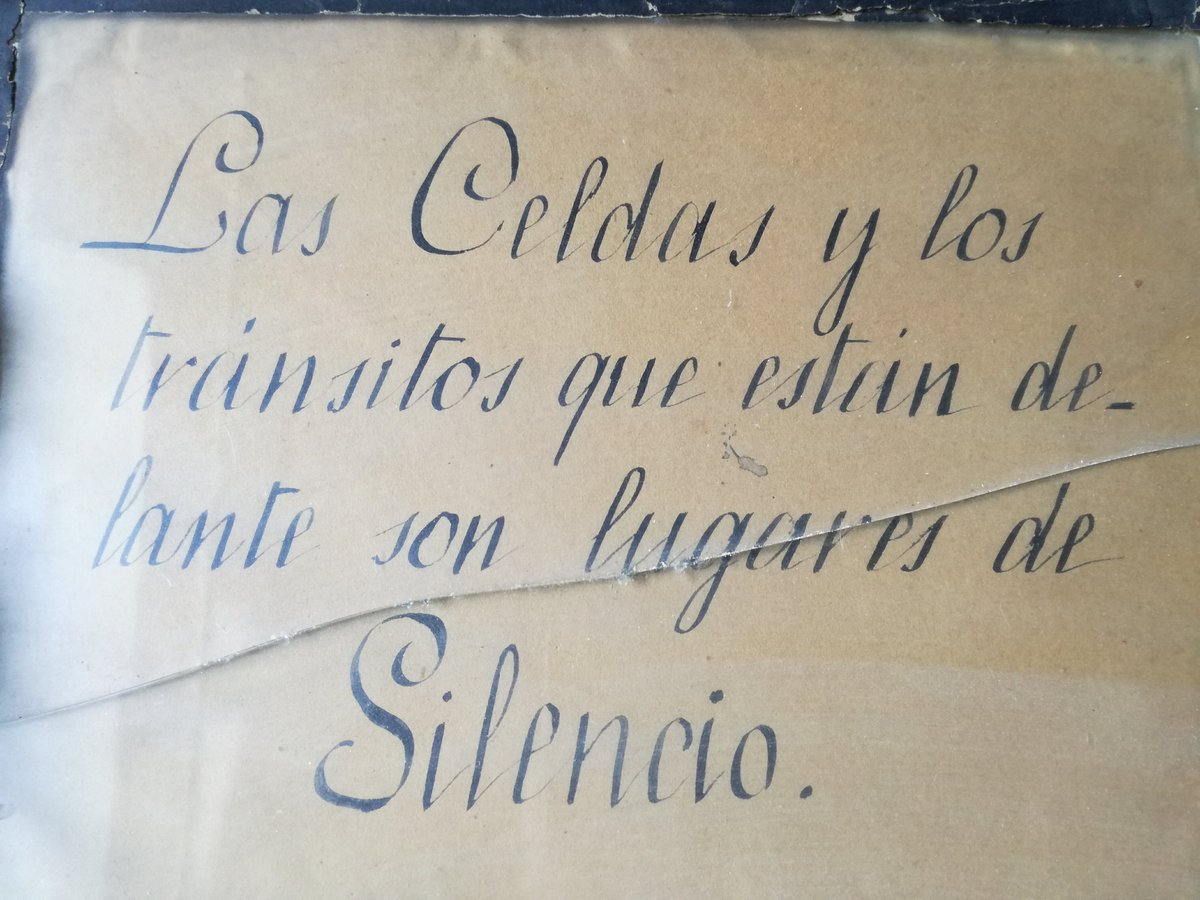 Las Celdas y los
tránsitos que están de-
lante son lugares de
Silencio.